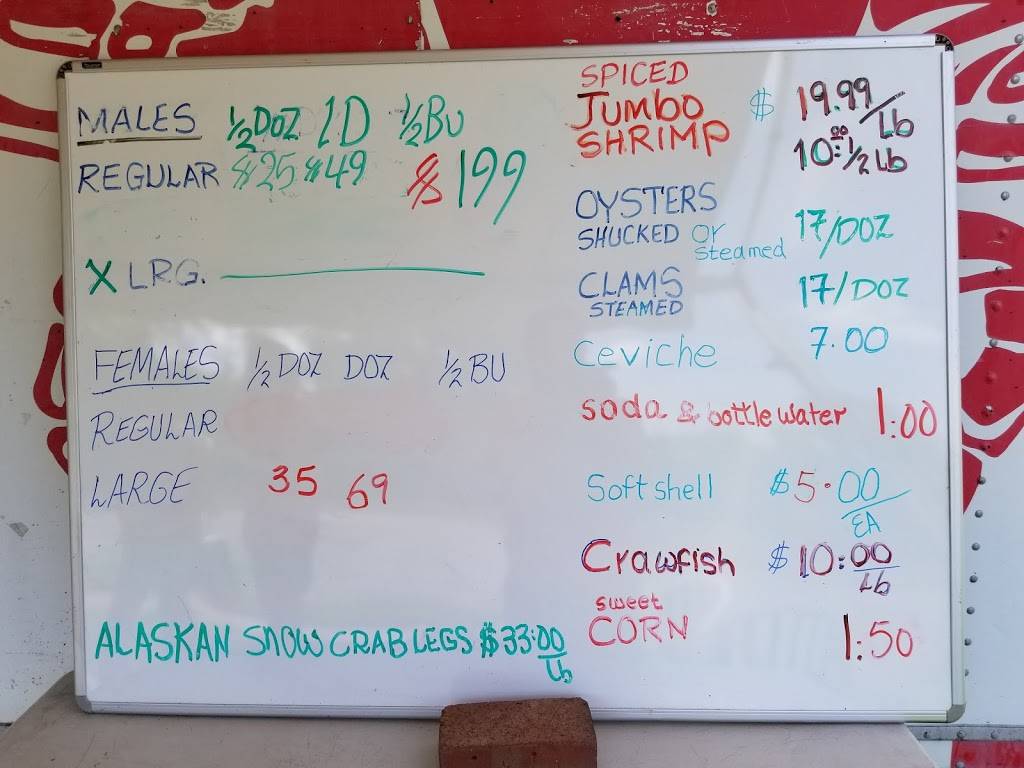 MALES ½ DOZ 1D ½ BU
REGULAR $25 $49 $199
X LRG.
FEMALES ½ DOZ DOZ ½ BU
REGULAR
LARGE 35 69
ALASKAN SNOW CRAB LEGS $33.00/Lb
SPICED
JUMBO $ 19.99/Lb
SHRIMP 10.00 : ½ Lb
OYSTERS
SHUCKED or steamed 17/DOZ
CLAMS 17/DOZ
STEAMED
Ceviche 7.00
soda & bottle water 1:00
Soft shell $5.00/EA
Crawfish $10:00/Lb
sweet
CORN 1:50